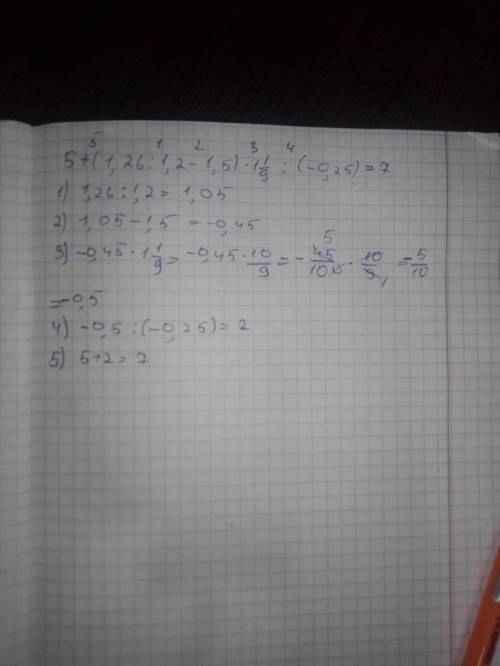 5 1 2 3 4
5+(1,26:1,2-1,5)·1 1/9:(-0,25)=7
1) 1,26:1,2=1,05
2) 1,05-1,5=-0,45
3) -0,45·1 1/9=-0,45·10/9=-45/100·10/9=-5/10
=-0,5
4) -0,5:(-0,25)=2
5) 5+2=7